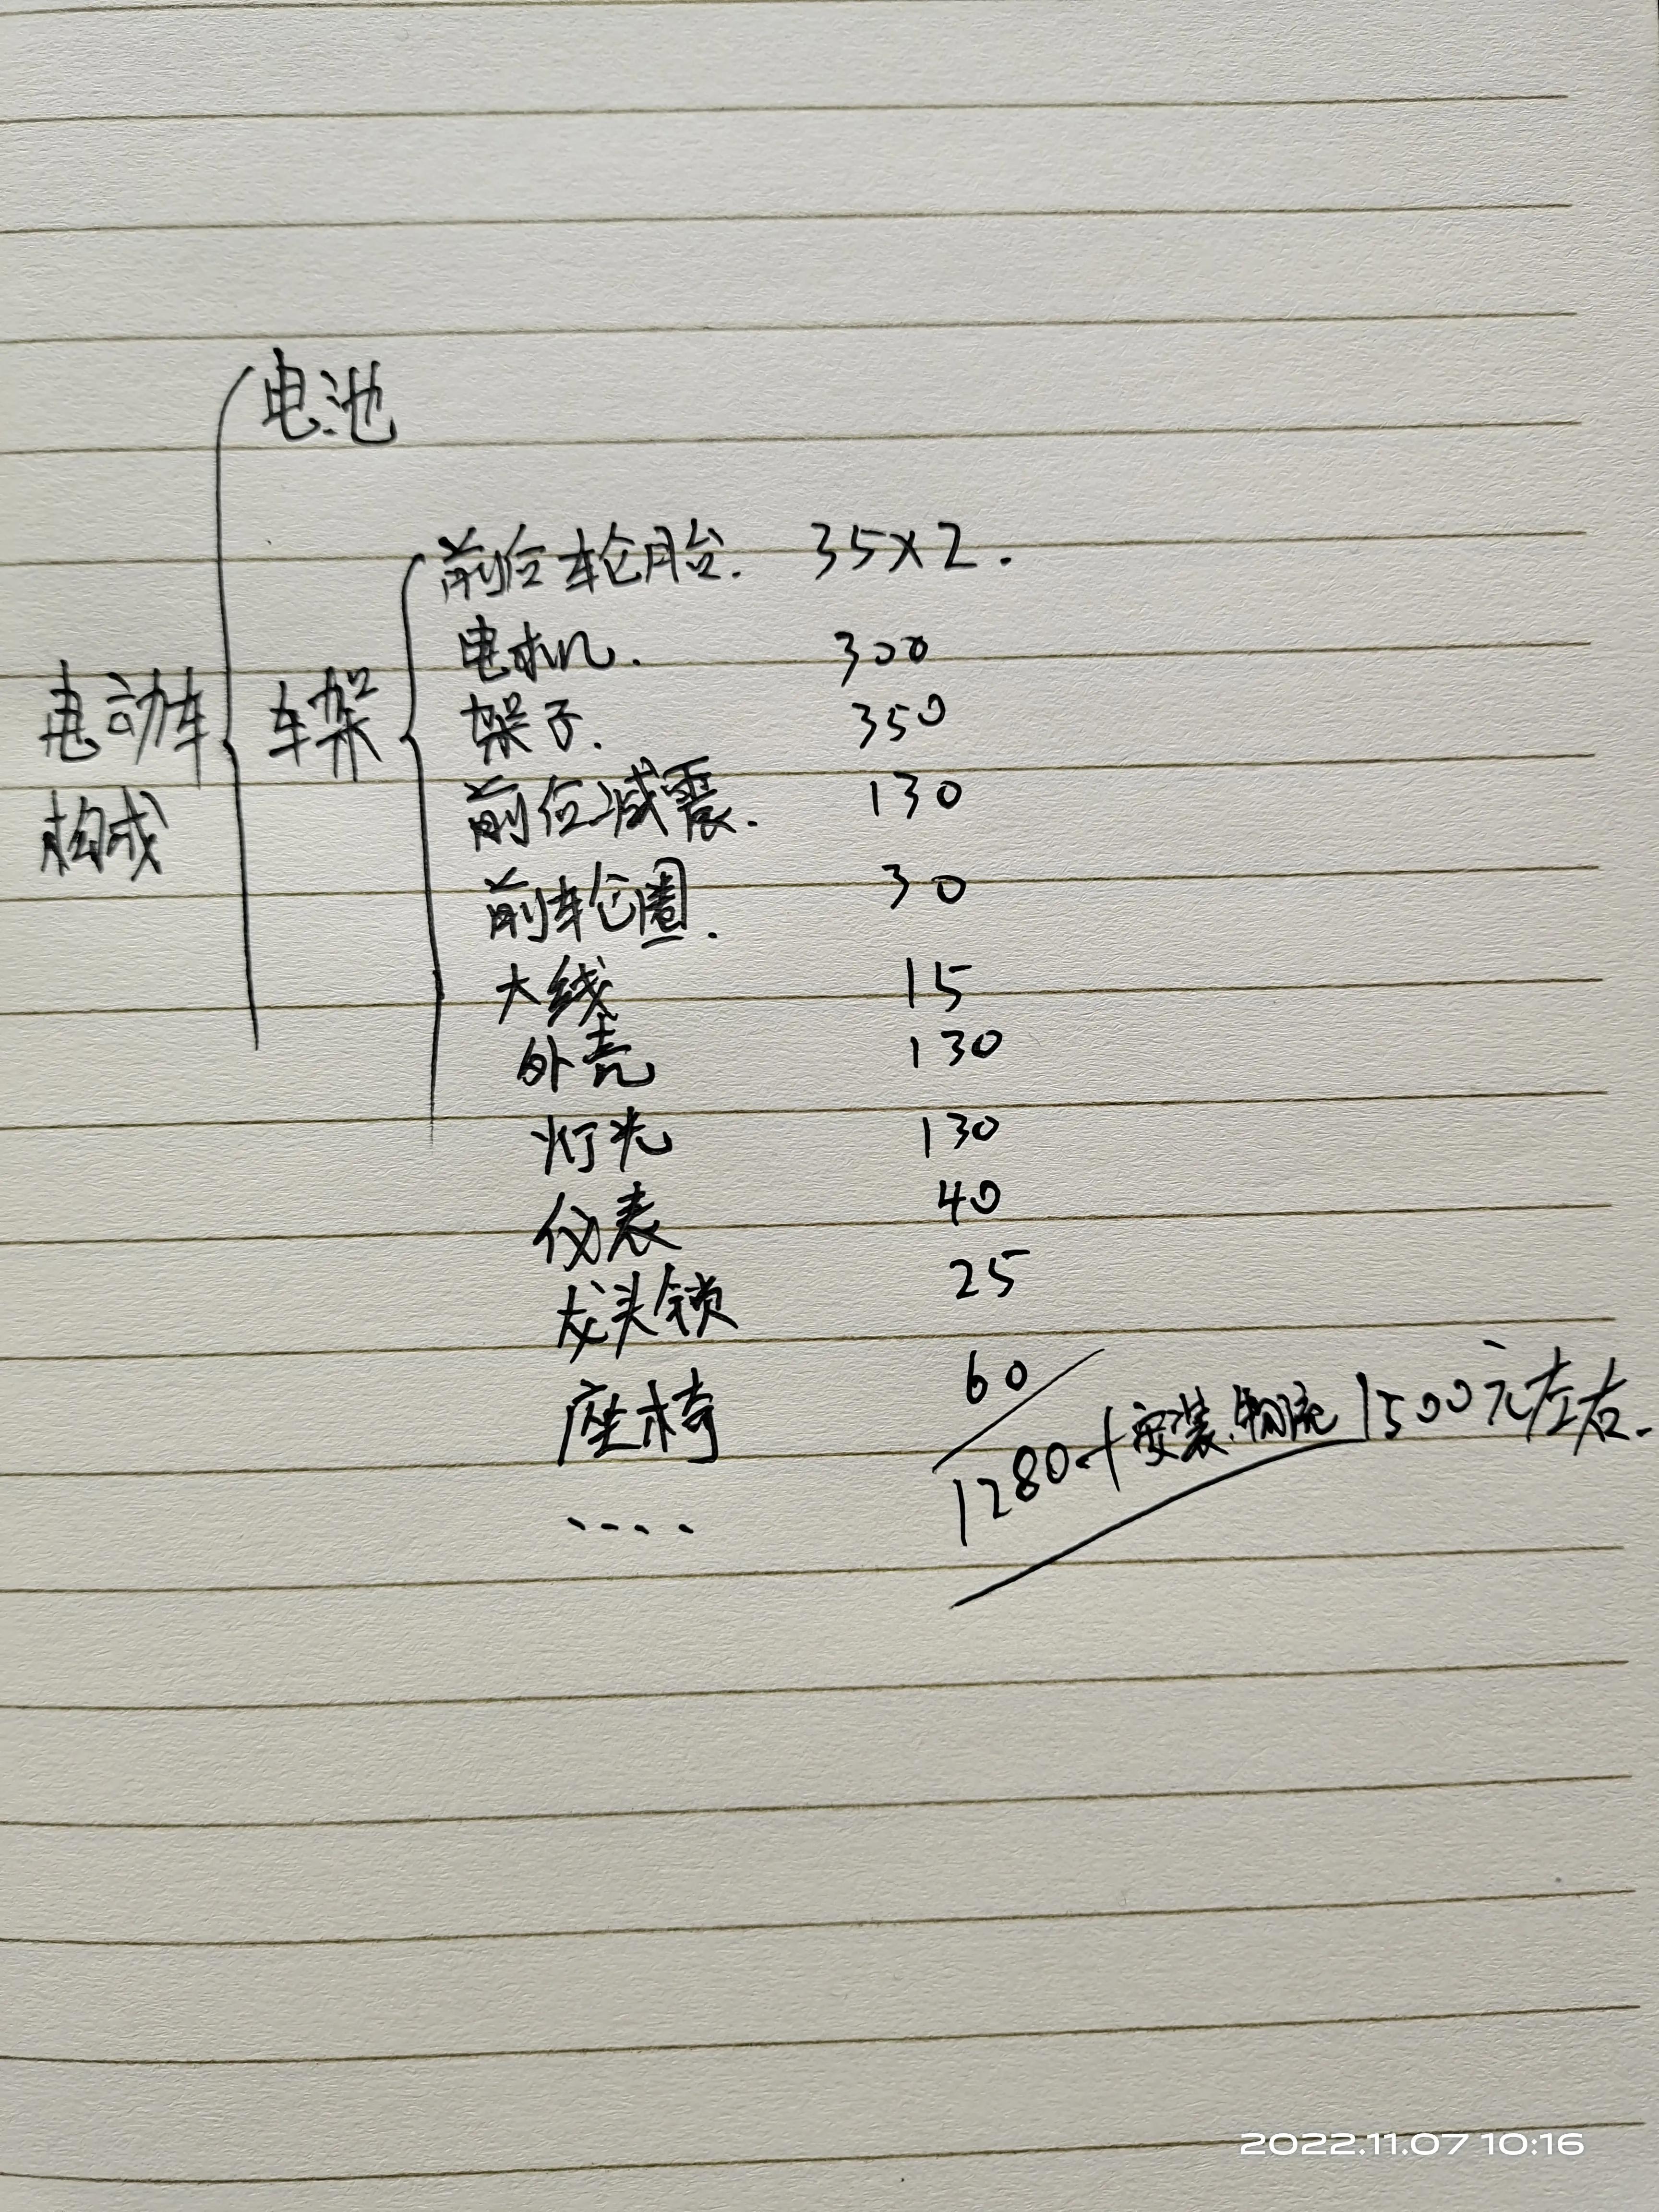 电池
前后车轮胎. 35×2.
电机. 300
电动车构成
车架
架子. 350
前后减震. 130
前车轮圈. 30
大线 15
外壳 130
灯光 130
仪表 40
龙头锁 25
座椅 60
1280.+安装.物流 1500元左右.
....
2022.11.07 10:16